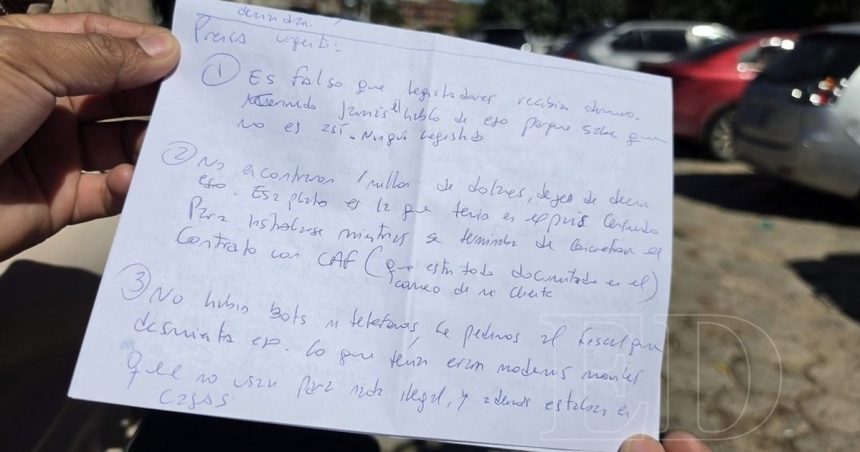 demanda.
Prensa urgente:
① Es falso que legisladores recibían dinero.
jamás habló de eso porque sabe que
no es así. Ningún legislador
② No encontraron 1 millón de dolares, dejen de decir
eso. Esa plata es la que tenía en
Para instalarse mientras se terminaba de concretar el
Contrato con CAF (que está todo documentado en el)
correo de mi cliente
③ No había bots ni teléfonos le pedimos al fiscal que
desmienta eso. Lo que tenía eran modems moviles
que no usan para nada ilegal, y además estaban en
cajas.
ED